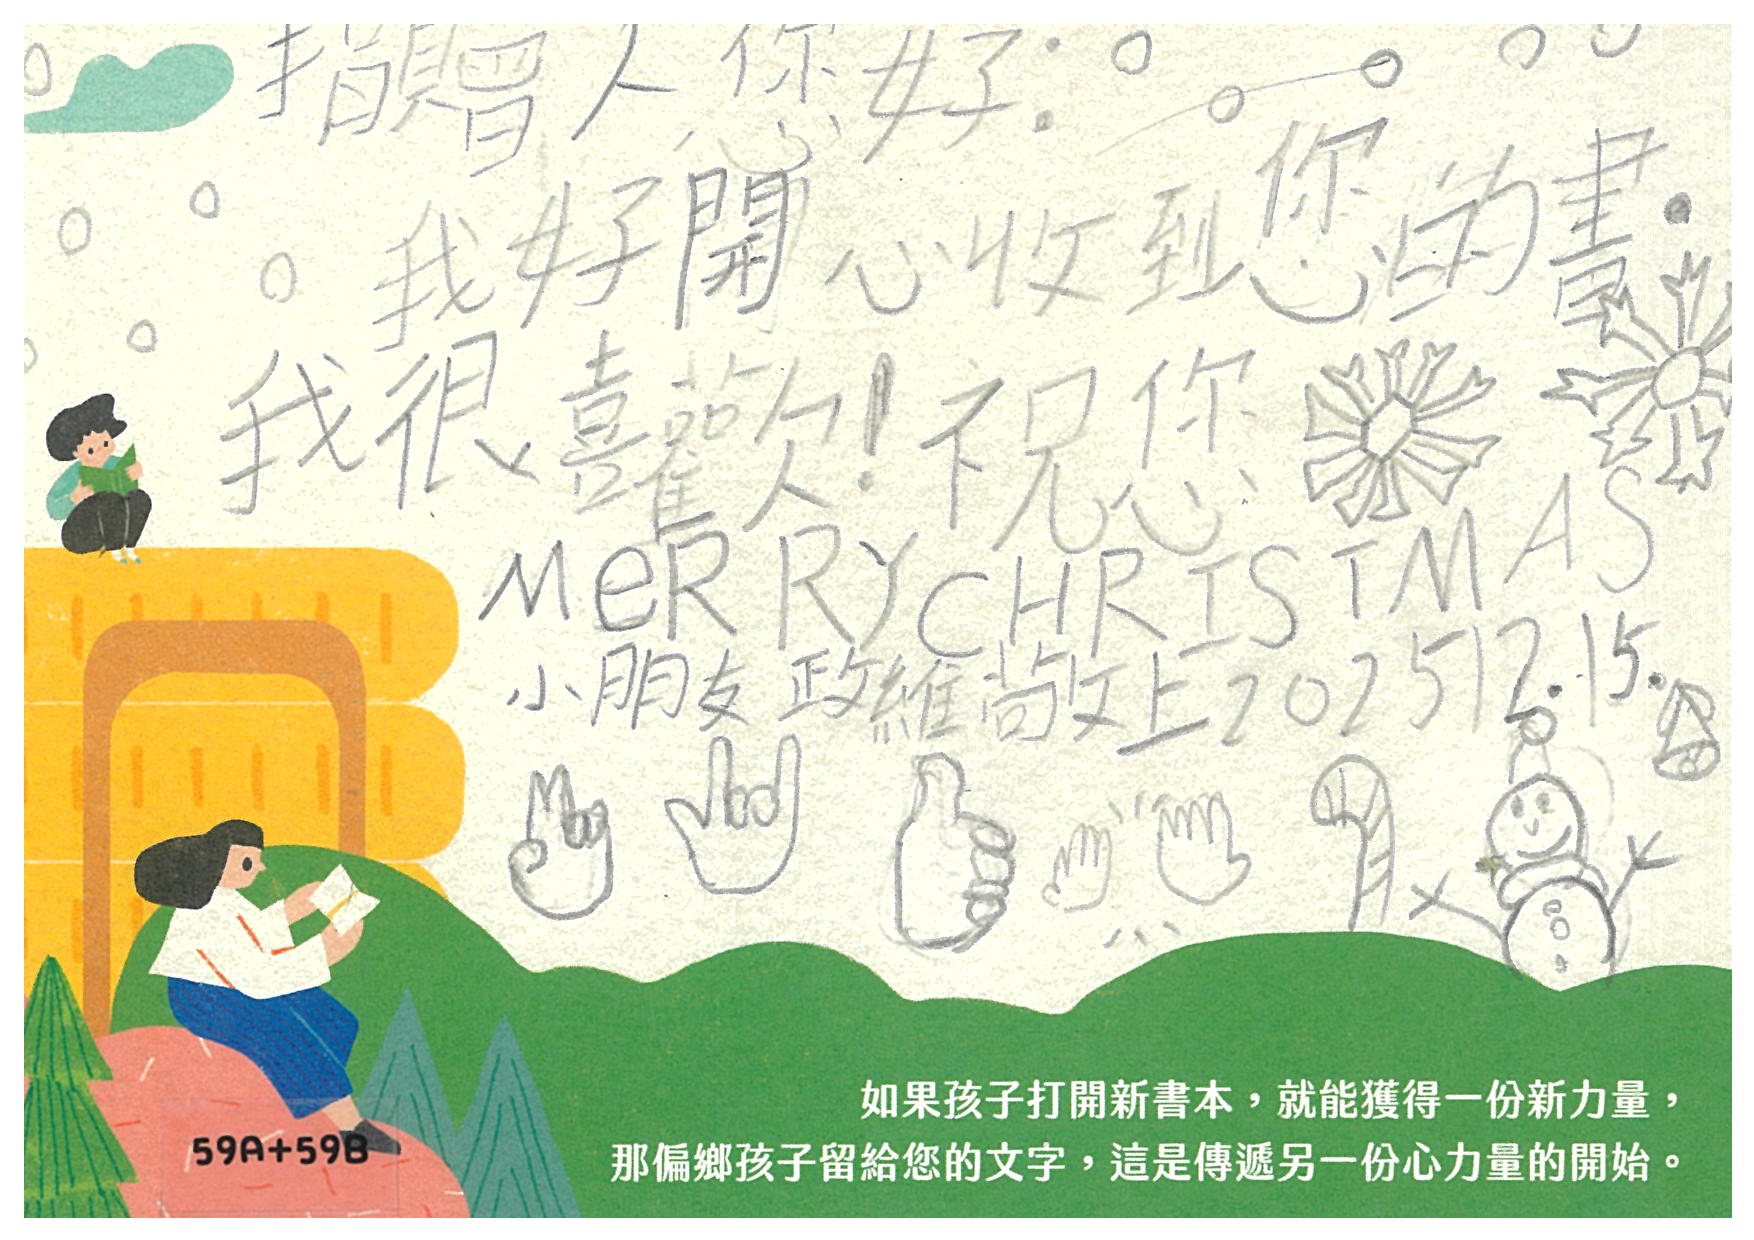 捐贈人您好：
我好開心收到您的書.
我很喜歡!祝您
MeRRY CHRISTMAS
小朋友 政維尚敬上 2025 12.15.
如果孩子打開新書本，就能獲得一份新力量，
那偏鄉孩子留給您的文字，這是傳遞另一份心力量的開始。
59A+59B